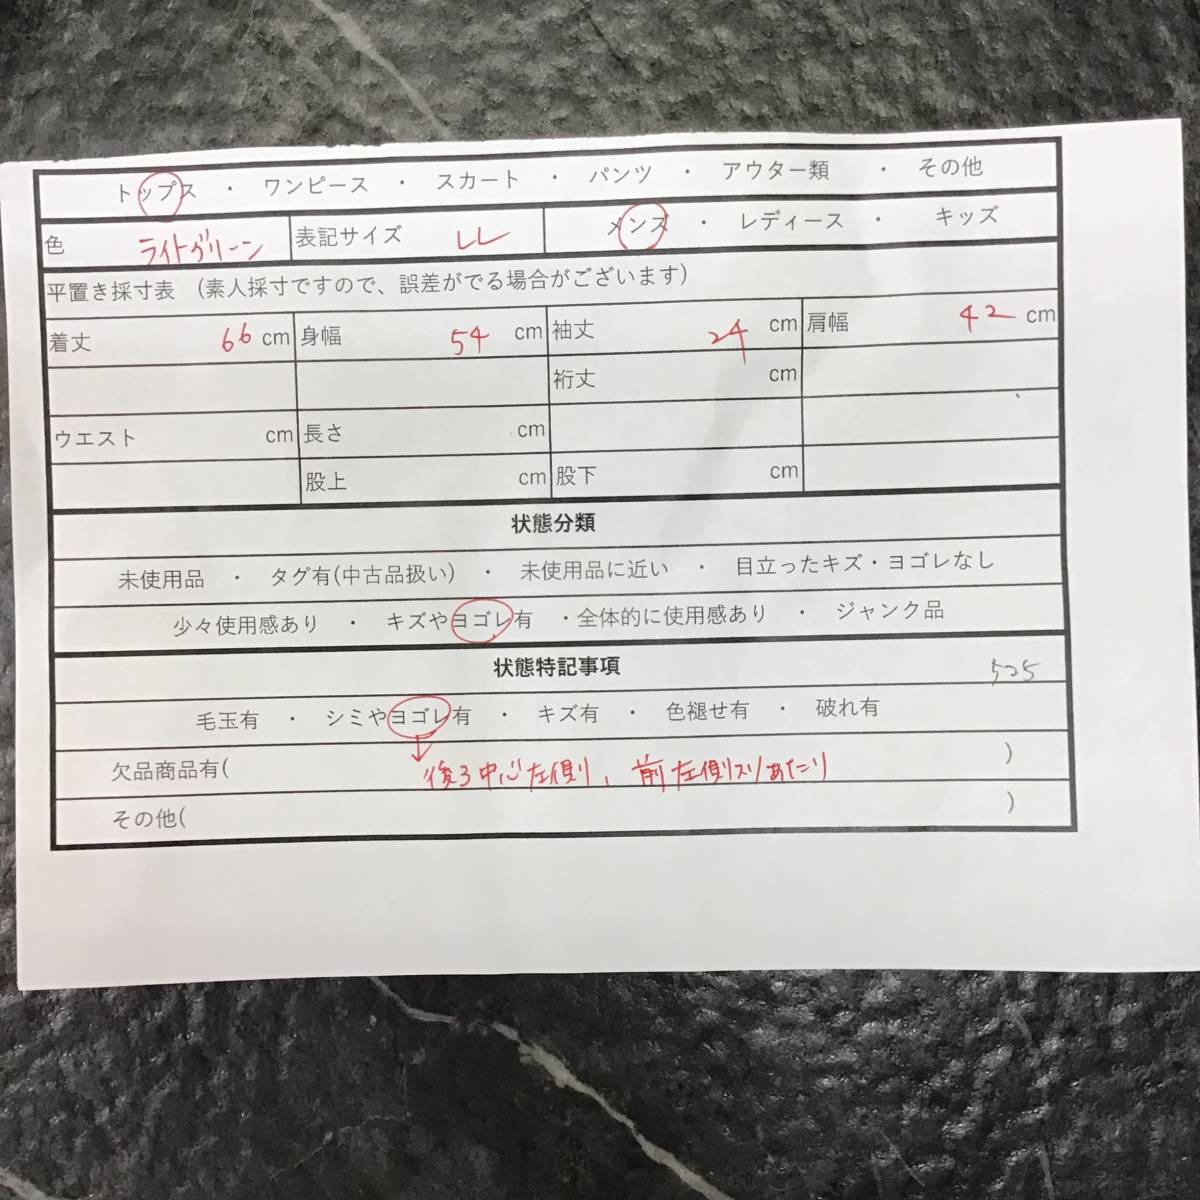 トップス ・ ワンピース ・ スカート ・ パンツ ・ アウター類 ・ その他
色 ライトグリーン 表記サイズ LL メンズ ・ レディース ・ キッズ
平置き採寸表 (素人採寸ですので、誤差がでる場合がございます)
着丈 66 cm 身幅 54 cm 袖丈 24 cm 肩幅 42 cm
裄丈 cm
ウエスト cm 長さ cm
股上 cm 股下 cm
状態分類
未使用品 ・ タグ有(中古品扱い) ・ 未使用品に近い ・ 目立ったキズ・ヨゴレなし
少々使用感あり ・ キズやヨゴレ有 ・全体的に使用感あり ・ ジャンク品
状態特記事項 525
毛玉有 ・ シミやヨゴレ有 ・ キズ有 ・ 色褪せ有 ・ 破れ有
欠品商品有( )
↓後ろ中心左側、前左側スソあたり
その他( )